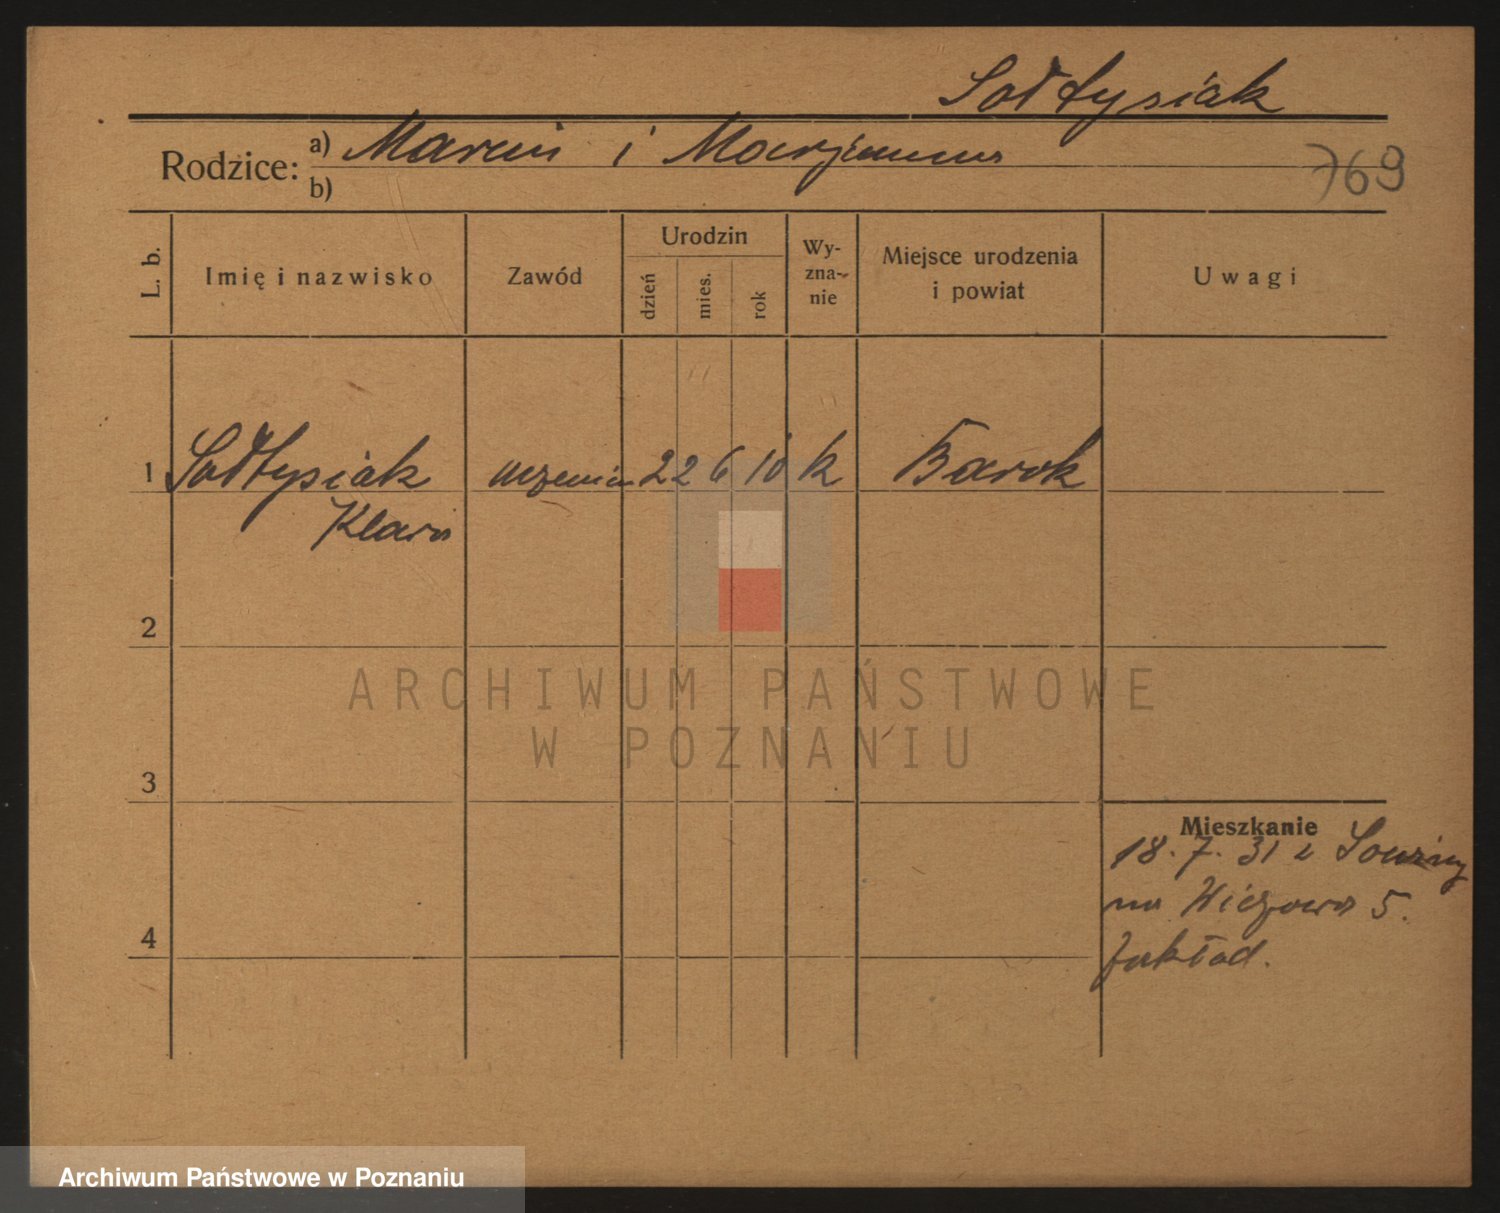 Sołtysiak
Rodzice: a) Marcin i Marjanna
b)
769
L. b.
Imię i nazwisko
Zawód
Urodzin
dzień
mies.
rok
Wy-
zna-
nie
Miejsce urodzenia
i powiat
Uwagi
1 Sołtysiak uczenica 22 6 10 k Barok
Klara
2
ARCHIWUM PAŃSTWOWE
W POZNANIU
3
Mieszkanie
18. 7. 31 z
na 5.
Zakład.
4
Archiwum Państwowe w Poznaniu